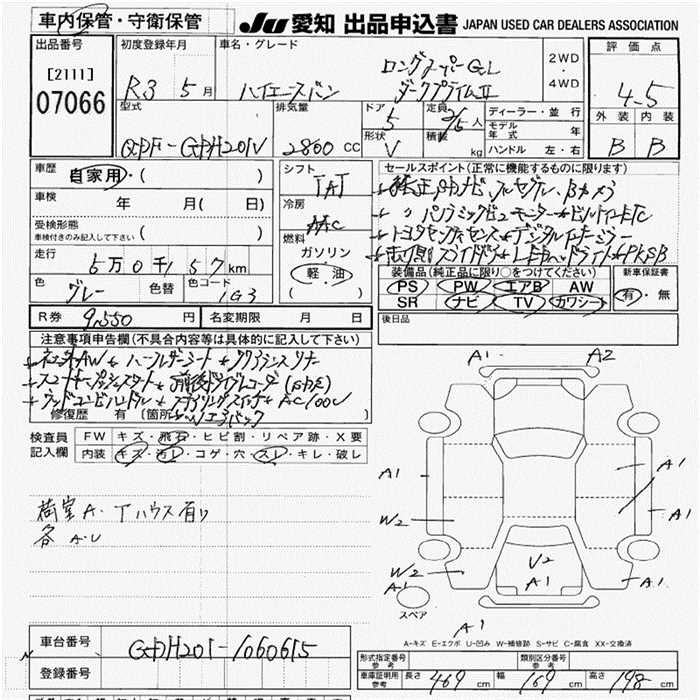 車内保管・守衛保管
JU 愛知 出品申込書 JAPAN USED CAR DEALERS ASSOCIATION
出品番号
[2111]
07066
初度登録年月
R3 5 月
車名・グレード
ハイエースバン
ロングスーパーGL
ダークプライムⅡ
2WD
・
4WD
評価点
4.5
外装 内装
B B
型式
GDH201V
排気量
2800 CC
ドア
5
形状
V
定員
2/5 人
積載
kg
ディーラー・並行
モデル年式 年
ハンドル 左・右
車歴
自家用・( )
車検
年 月( 日)
受検形態
車検付きのみ記入して下さい ( )
走行
5万0千157km
色
グレー
色替
色コード
1G3
シフト
IAT
冷房
AAC
燃料
ガソリン
軽油
( )
セールスポイント(正常に機能するものに限ります)
純正 ナビ、フルセグTV、Bカメラ
パノラミックビューモニター ビルトインETC
トヨタセーフティセンス デジタルインナーミラー
両側 スライドドア LEDヘッドライト PKSB
装備品(純正品に限り○をつけてください)
PS PW エアB AW
SR ナビ TV カワシート
新車保証書
有・無
R券 9,550 円
名変期限 月 日
後日品
注意事項申告欄(不具合内容等は具体的に記入して下さい)
AW ハーフレザーシート クリアランスソナー
スマートキー プッシュスタート 前後ドライブレコーダー
ウッドコンビハンドル ステアリングスイッチ AC100V
修復歴 有 [箇所
検査員
記入欄
FW キズ・飛石・ヒビ割・リペア跡・X要
内装 キズ・汚レ・コゲ・穴・スレ・キレ・破レ
荷室 A. Tハウス有り
各 A.U
A1 A2
A1 A1
W2 A1
W2 V2 A1
A1 A1
スペア
A1
A-キズ E-エクボ U-凹み W-補修跡 S-サビ C-腐食 XX-交換済
車台番号
GDH201-1060615
登録番号
形式指定番号
参考
類別区分番号
参考
車庫証明用
参考
長さ 469 cm 幅 169 cm 高さ 198 cm